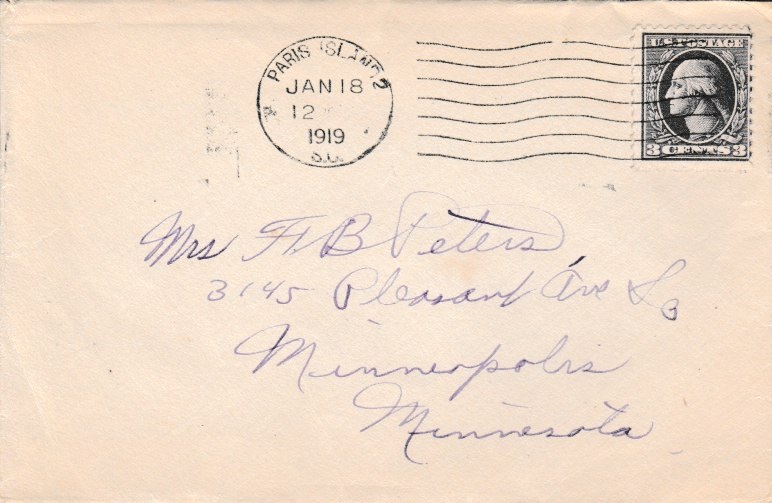 PARIS ISLAND,
JAN 18
12
1919
S.C.
U.S. POSTAGE
3 CENTS 3
Mrs F B Peters,
3145 Pleasant Ave So
Minneapolis
Minnesota